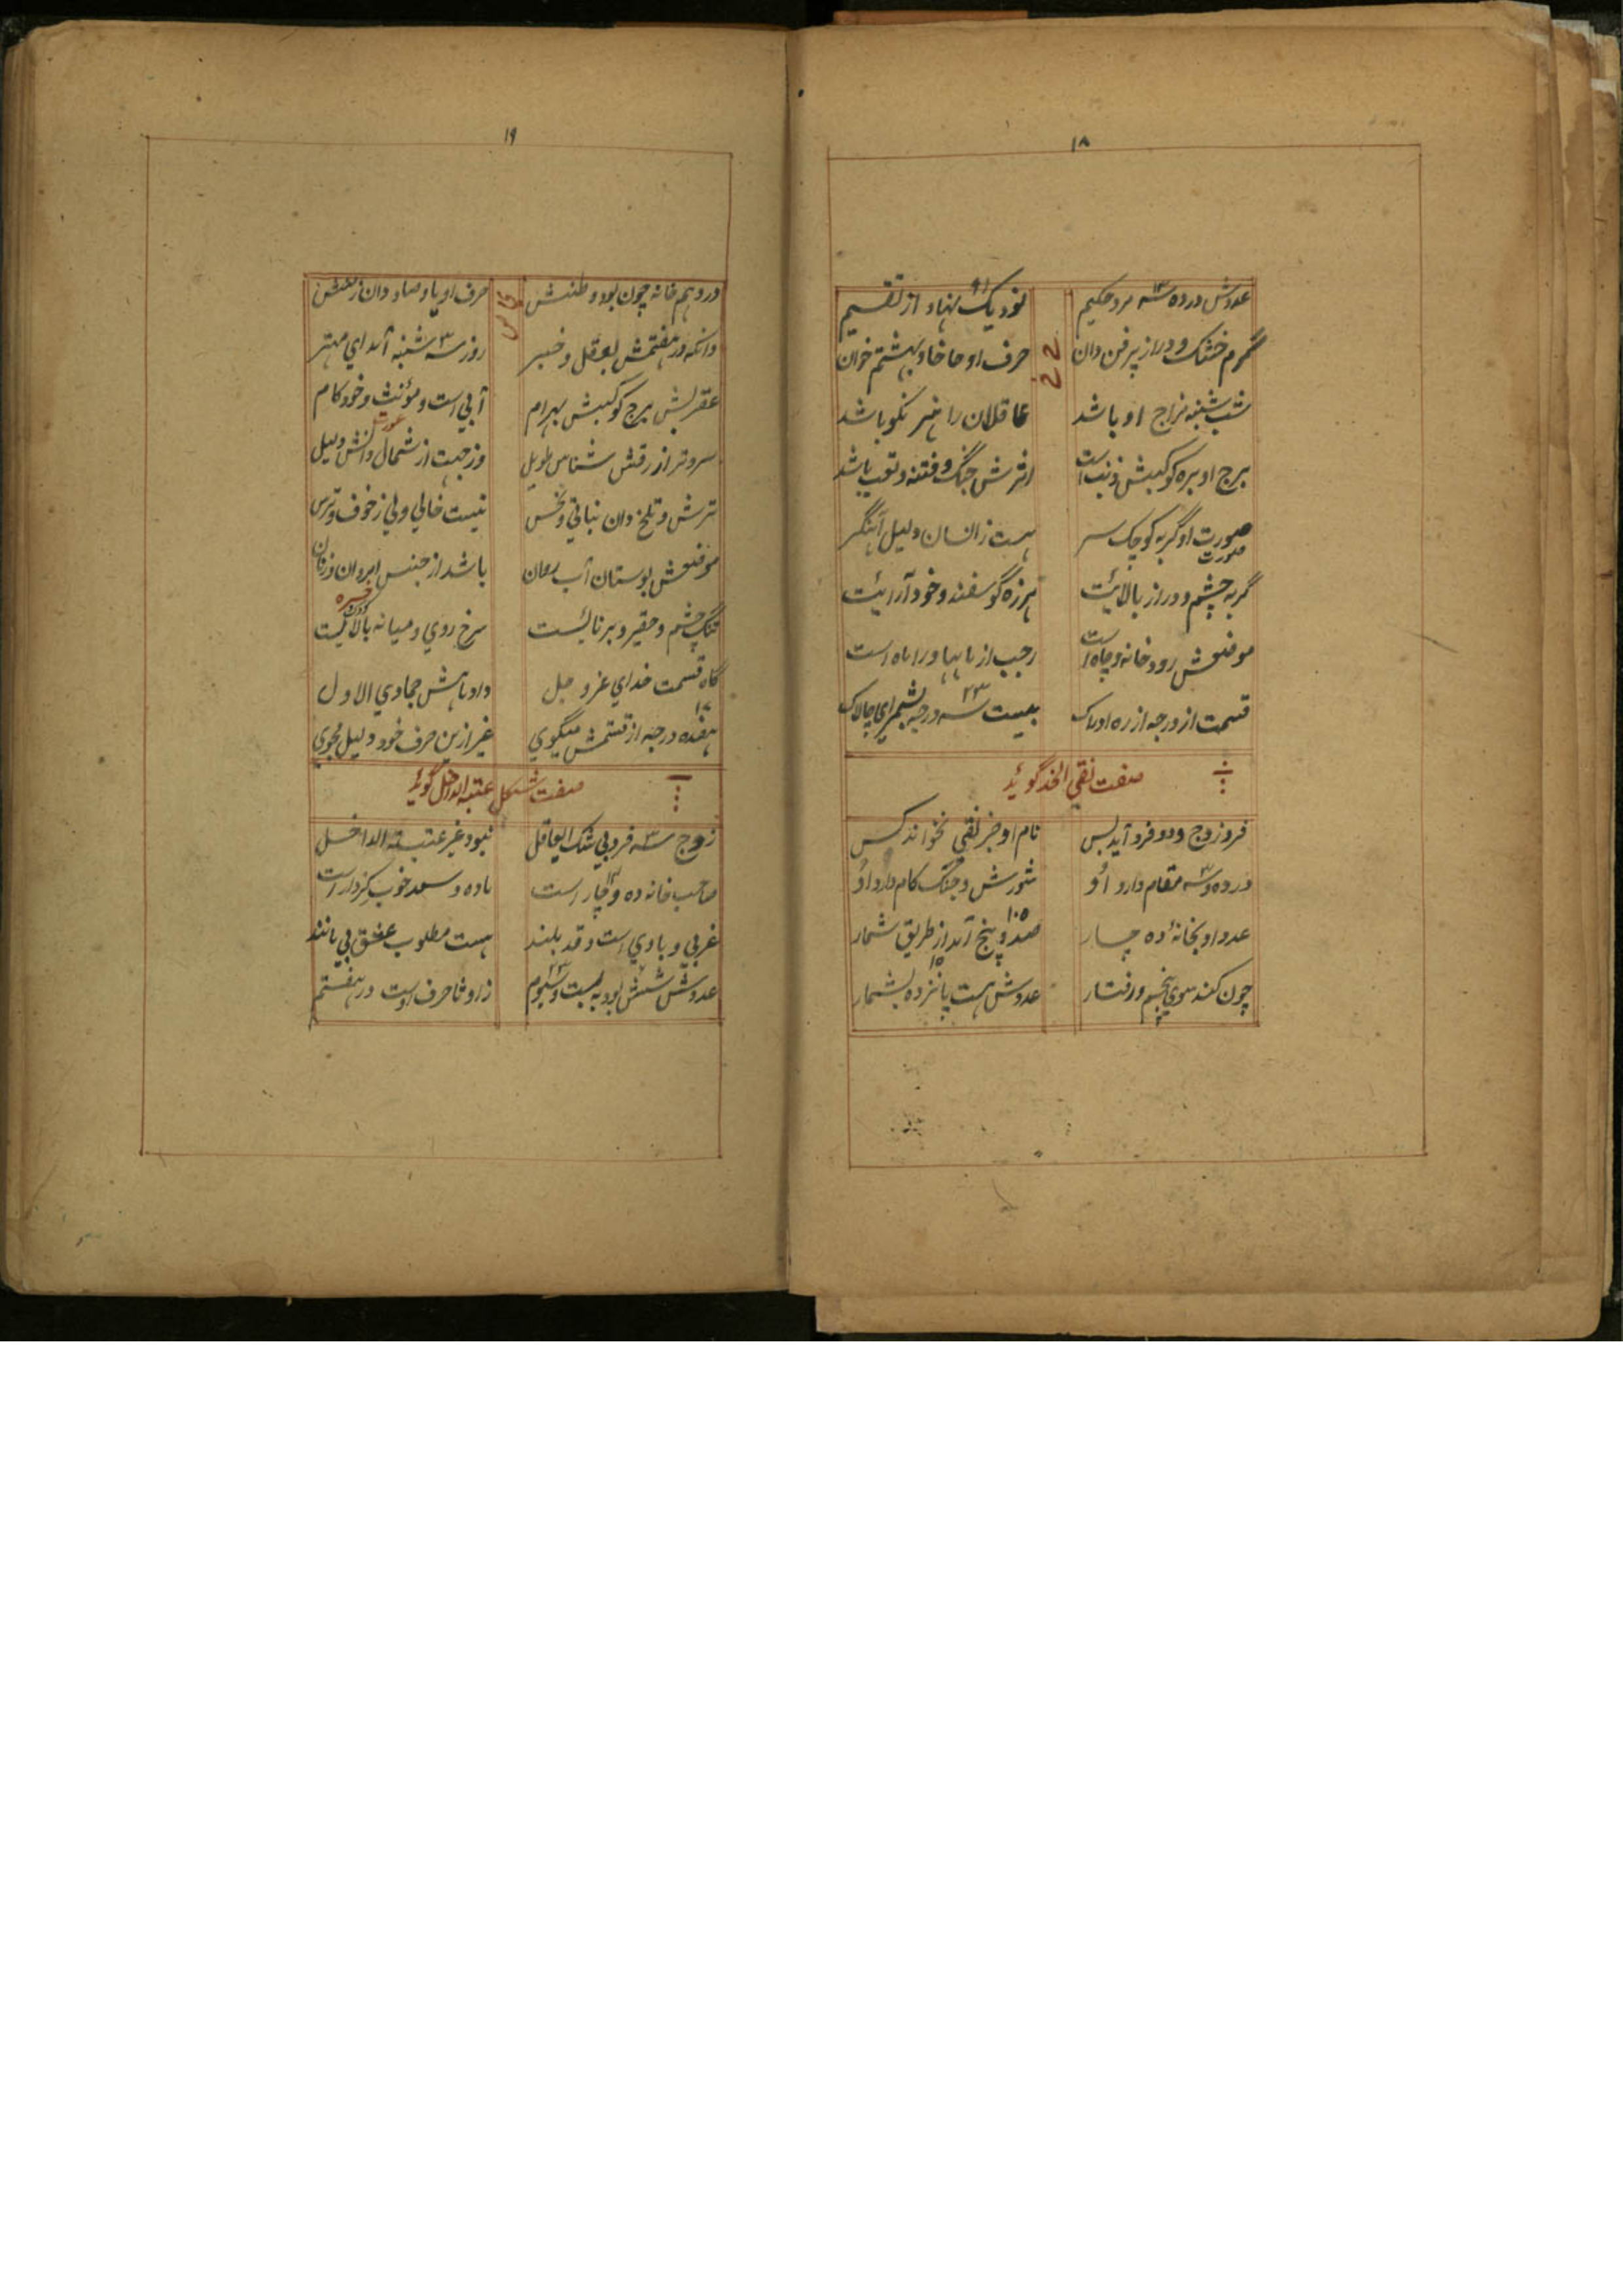 ۱۸
عددش در ده سه مرد حکیم نود یک نهاد از تقسیم
گرم خشک و دراز پرفن دان حرف او حا خا و بهشتم خوان
شب شنبه مزاج او باشد عاقلان را هنر نکو باشد
برج او بره کوکبش ذنب است اثرش جنگ و فتنه و تعب باشد
صورت او گربه کوچک سر هست ز انسان دلیل آهنگر
گربه چشم و دراز بالایت هرزه گو سفند و خود آرایت
موضعش رودخانه و چاه است رجب از ماهها ورا ماه است
قسمت از درجه از ره ادراک بیست سه درجه بشمر ای چالاک
صفت نقی الخد گوید
فرد زوج و دو فرد آید بس نام او جز نقی نخواند کس
در ده و سه مقام دارد او شورش و جنگ کام دارد او
عدد او بخانه ده چار صد و پنج آید از طریق شمار
۱۰۵
چون کند سوی پنجم رفتار عددش هست پانزده بشمار
۱۵
۱۹
در دهم خانه چون بود وطنش حرف او یا و صاد دان ز
وانکه در هفتمش بعقل و خبیر روز سه شنبه آمد ای مهتر
عقربش برج کوکبش بهرام آبی است و مؤنث و خود کام
سرد و تر از رقش شناس طویل وز جهت از شمال دانش دلیل
ترش و تلخ دان نباتی و نحس نیست خالی ولی ز خوف و ترس
موضعش بوستان آب روان باشد از جنس و زنان
تنگ چشم و حقیر و برنائیست سرخ روی و میانه بالائیست
گاه قسمت خدای عز و جل داد ماهش جمادی الاول
۱۷
هفده درجه از قسمتش میگوی غیر ازین حرف خود دلیل مجوی
صفت شکل عتبة الداخل گوید
زوج سه فرد بی شک ای عاقل نبود غیر عتبة الداخل
صاحب خانه ده و چار است ماده و سعد خوب کردار است
غربی و بادی است و قد بلند هست مطلوب عشق بی مانند
عددش شش بود به بیست و سیوم زا و ثا حرف اوست در هفتم